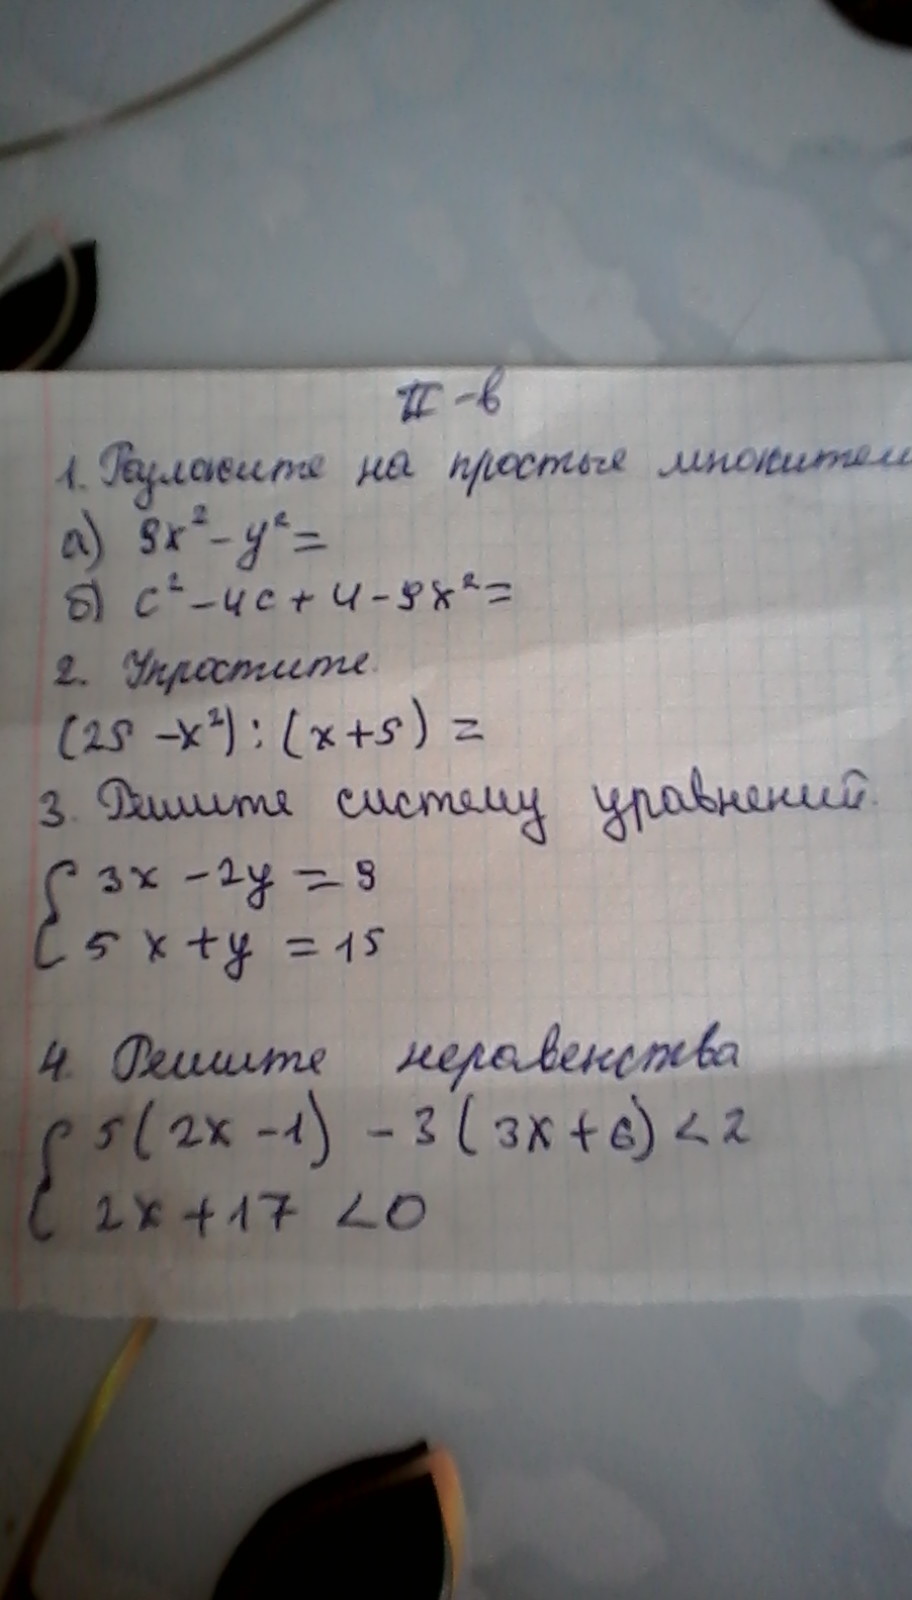 II - в
1. Разложите на простые множители
а) 9x² - y² =
б) c² - 4c + 4 - 9x² =
2. Упростите.
(25 - x²) : (x + 5) =
3. Решите систему уравнений.
{ 3x - 2y = 9
5x + y = 15
4. Решите неравенства
{ 5(2x - 1) - 3(3x + 6) < 2
2x + 17 < 0